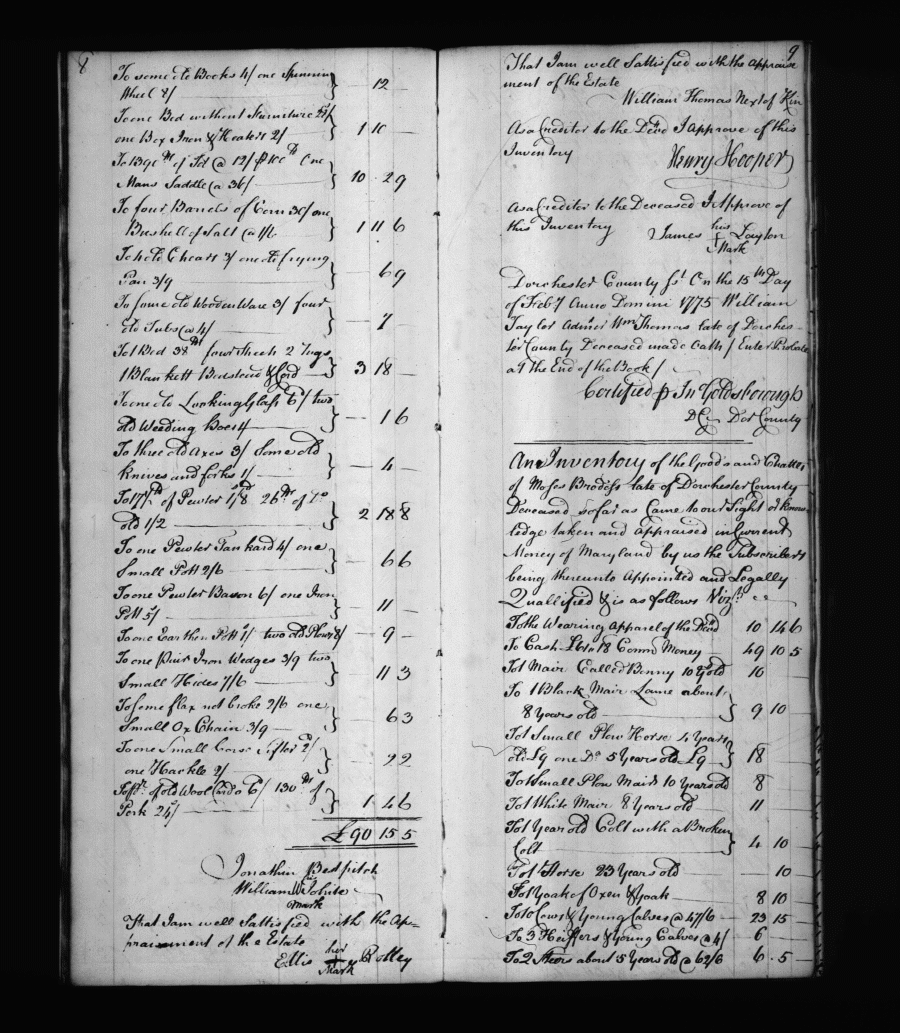 8
To some old Books 4/ one Spinning
Wheel 8/ 12
To one Bed without Furniture 25/
one Box Iron & Heaters 2/ 1 10
of Tol @ 12/ One
Mans Saddle @ 36/ 10 2 9
To four Barrels of Corn 30/ one
Bushell of Salt @ 1/6 1 11 6
To 1 old Cheast 3/ one old frying
Pan 3/9 6 9
To some old Wooden Ware 3/ four
old Tubs @ 4/ 7
To 1 Bed 38 lb four sheets 2 Rugs
1 Blankett Bedstead & Cord 3 18
To one old Looking Glass 6d/ two
old Weeding Hoes 1 6
To three old Axes 3/ Some old
Knives and forks 1/ 4
To 17 lb of Pewter 1/8 26 lb of Do
old 1/2 2 18 8
To one Pewter Tankard 4/ one
Small Pott 2/6 6 6
To one Pewter Bason 6/ one Iron
Pott 5/ 11
To one Earthen Pott 1/ two old Plows 8/ 9
To one Pair Iron Wedges 3/9 two
Small Hides 7/6 11 3
To some flax not broke 2/6 one
Small Ox Chain 3/9 6 3
To one Small Corse Sifter 2/
one Hackle 2/ 2 2
of old Wool Cards 6d/ 190 lb of
Pork 24/ 1 4 6
£90 15 5
Jonathin Bestpitch
William White
mark
That I am well Sattisfied with the Ap-
praisement of the Estate
her
Ellis + Botley
Mark
9
That I am well Sattisfied with the Appraise
ment of the Estate
William Thomas Next of Kin
As a Creditor to the Decd I Approve of this
Inventory Henry Hooper
As a Creditor to the Deceased I Approve of
this Inventory James his Layton
Mark
Dorchester County Sc. On the 15th Day
of Feby Anno Domini 1775 William
Taylor Admr Wm Thomas late of Dorches-
ter County Deceased made Oath / Enter Probate
at the End of the Book /
Certified p Jn Goldsborough
D Cy Dor County
An Inventory of the Goods and Chattels
of Moses Brodess late of Dorchester County
Deceased so far as Came to our Sight & Know-
ledge taken and Appraised in Current
Money of Maryland by us the Subscribers
being thereunto Appointed and Legally
Quallified & is as follows Vizt
To the Wearing Apparel of the Decd 10 14 6
To Cash £61 18 Comn Money 49 10 5
To 1 Mair Called Bonny 10 Y old 16
To 1 Black Mair Lame about
8 Years old 9 10
To 1 Small Plow Horse 4 Years
old £9 one Do 5 Years old £9 18
To 1 Small Plow Mair 10 Years old 8
To 1 White Mair 8 Years old 11
To 1 Year old Colt with a Broken
Colt 4 10
To 1 Horse 23 Years old 10
To 1 Yoak of Oxen & Yoak 8 10
To 10 Cows & Young Calves @ 47/6 23 15
To 3 Heiffers & Young Calves @ 4/ 6
To 2 Steers about 5 Years old @ 62/6 6 5